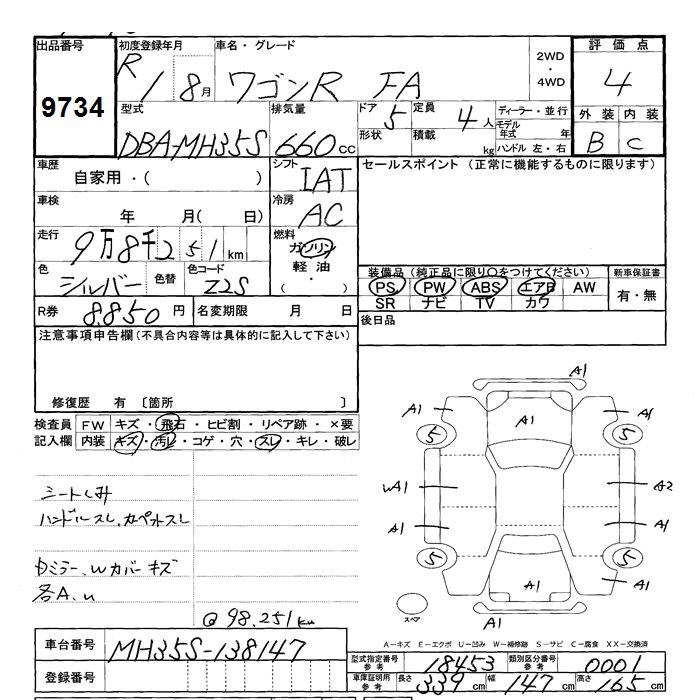 出品番号 初度登録年月 車名・グレード 評価点
9734 R 1 8月 ワゴンR FA 2WD・4WD 4
型式 排気量 ドア 5 定員 4人 ディーラー・並行 外装 内装
DBA-MH35S 660cc 形状 積載 kg モデル年式 年 ハンドル 左・右 B C
車歴 シフト セールスポイント (正常に機能するものに限ります)
自家用・( ) IAT
車検 冷房
年 月( 日) AC
走行 燃料
9万8千251km ガソリン
色 色替 色コード 軽油・
シルバー Z2S ( )
装備品 (純正品に限り○をつけてください) 新車保証書
PS PW ABS エアB AW 有・無
SR ナビ TV カワ
R券 8,850円 名変期限 月 日 後日品
注意事項申告欄 (不具合内容等は具体的に記入して下さい)
修復歴 有 〔箇所 〕
検査員 FW キズ・飛石・ヒビ割・リペア跡・×要
記入欄 内装 キズ・汚れ・コゲ・穴・スレ・キレ・破レ
シートしみ
ハンドルスレ、カペットスレ
Dミラー、Wカバーキズ
各A、U
@98,251km
A1
A1 A1 A1
5 5
WA1 A2
A1 A1
5 5
A1 A1 A1
スペア A1
A-キズ E-エクボ U-凹み W-補修跡 S-サビ C-腐食 XX-交換済
車台番号 MH35S-138147
登録番号
型式指定番号 参考 18453 類別区分番号 参考 0001
車庫証明用 参考 長さ 339cm 幅 147cm 高さ 165cm